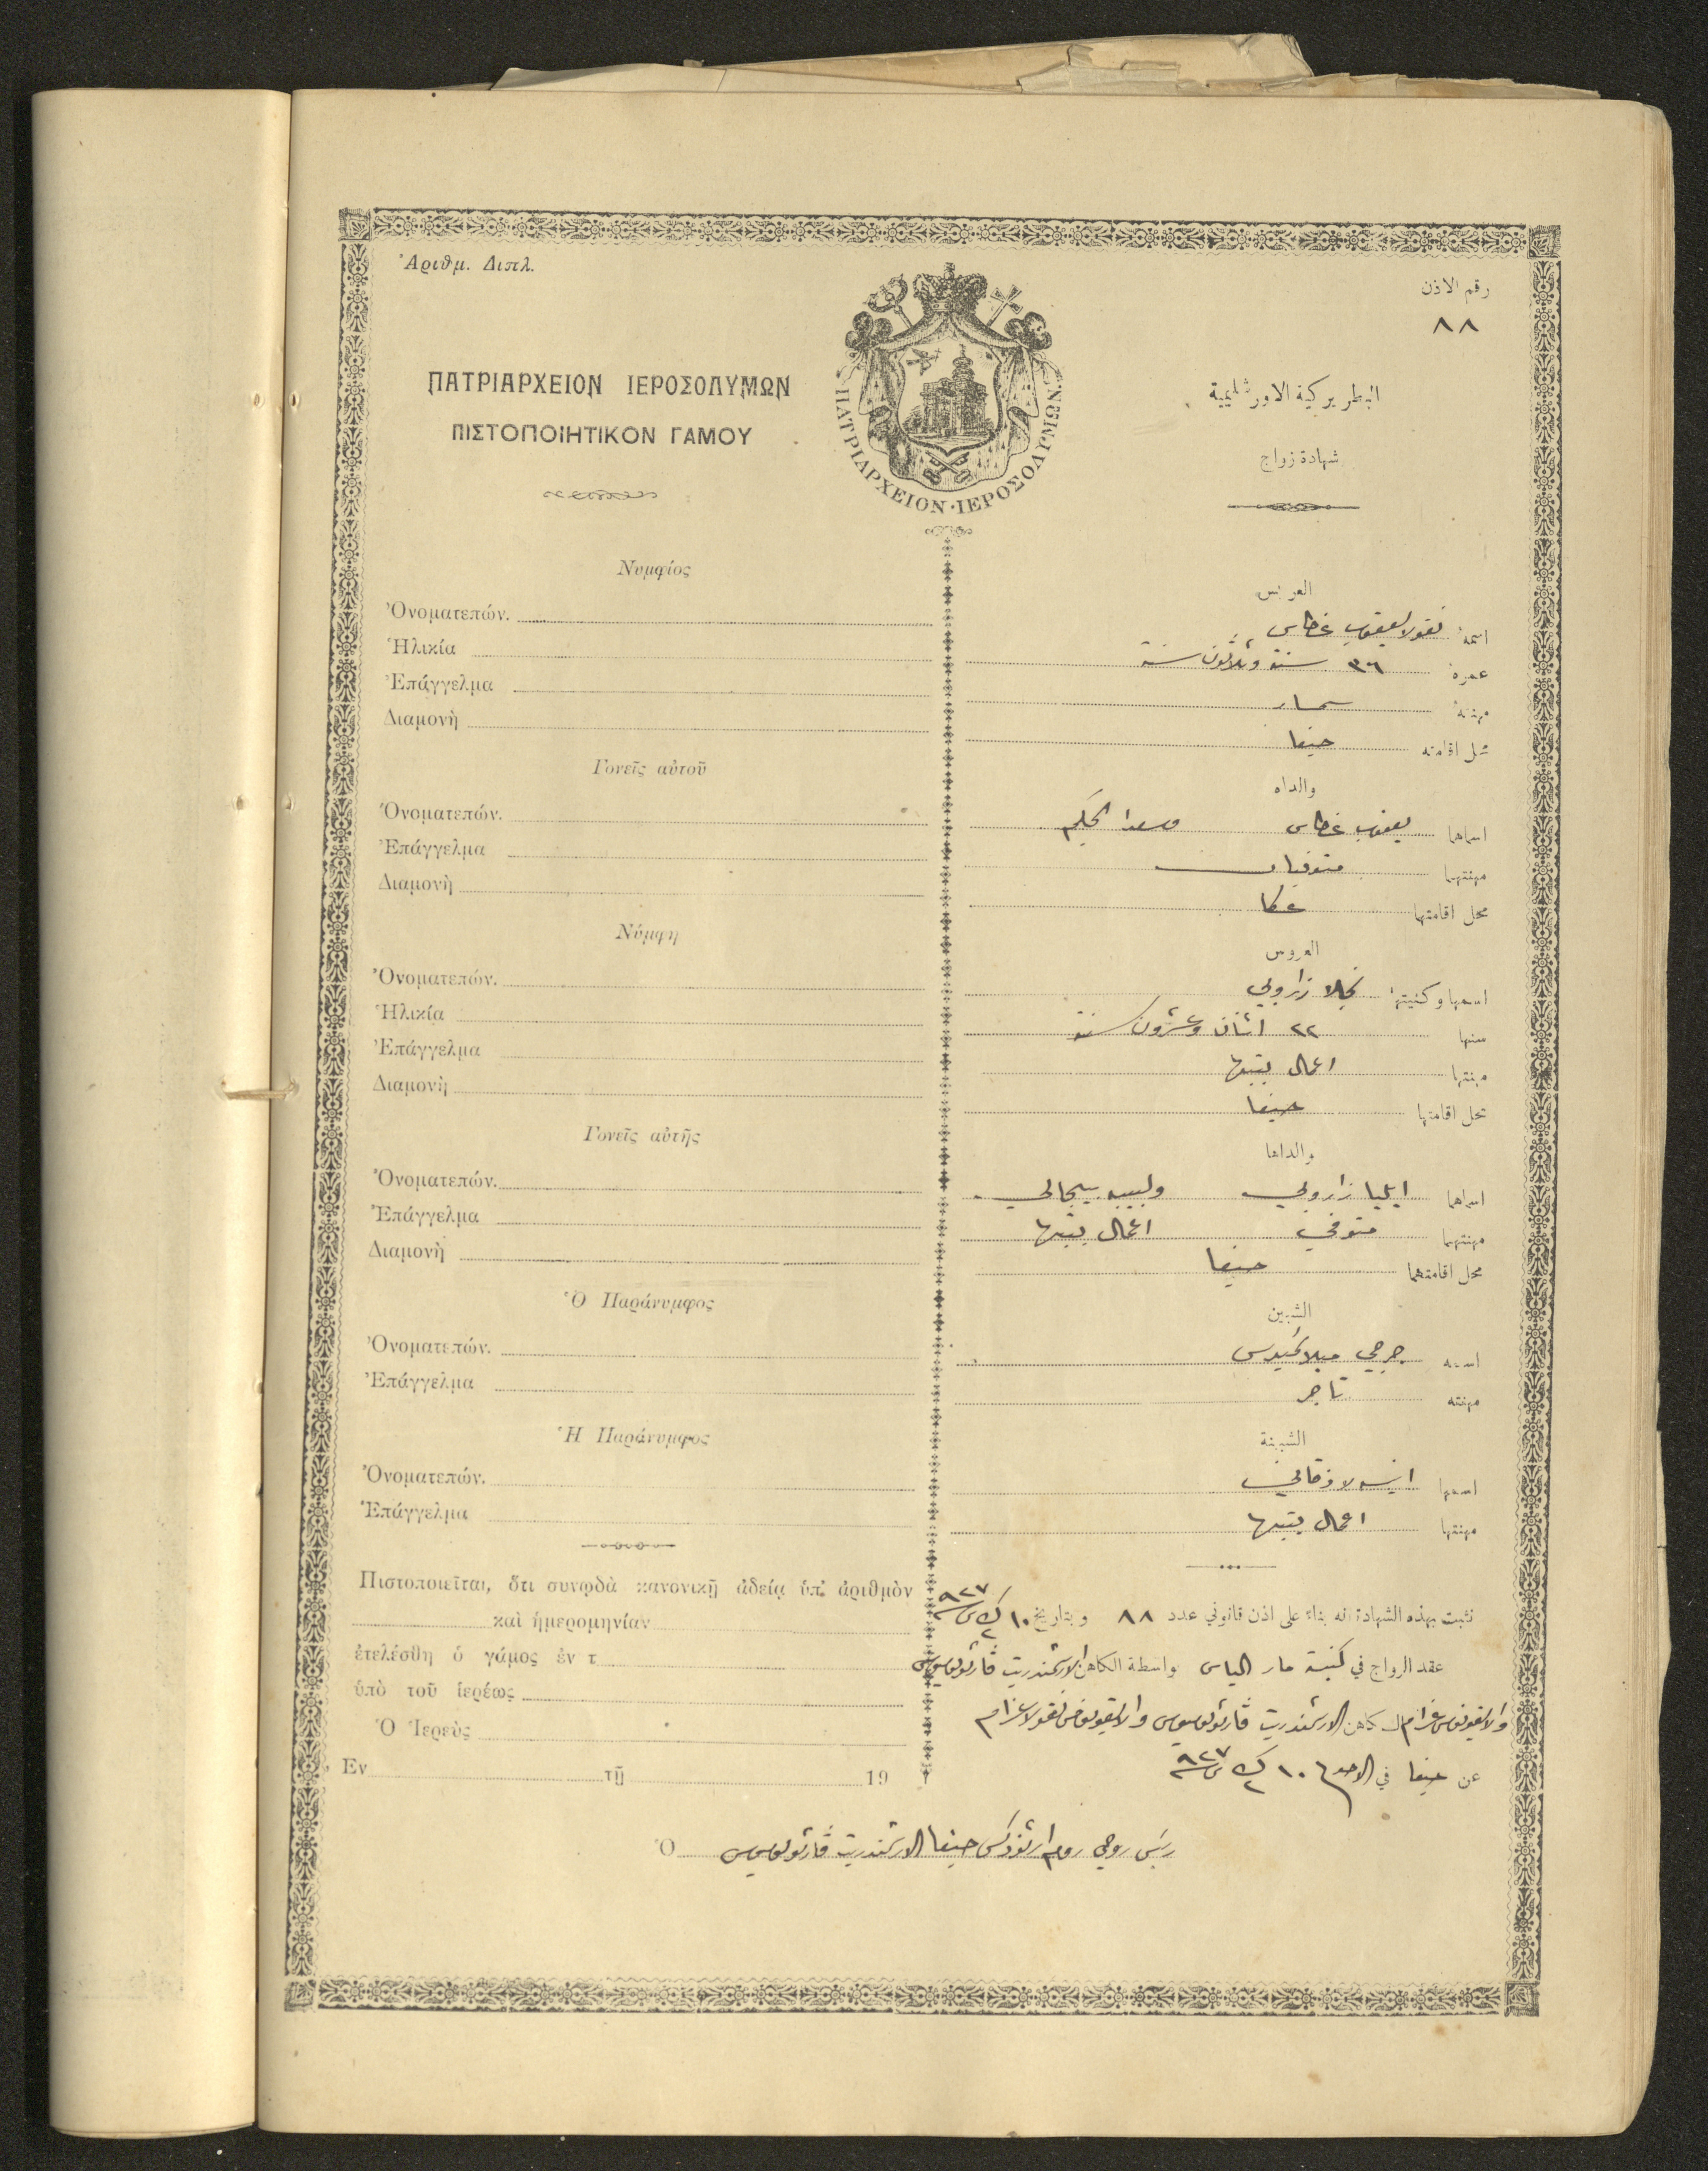 Ἀριθμ. Διπλ.
رقم الاذن
٨٨
ΠΑΤΡΙΑΡΧΕΙΟΝ ΙΕΡΟΣΟΛΥΜΩΝ
ΠΙΣΤΟΠΟΙΗΤΙΚΟΝ ΓΑΜΟΥ
ΠΑΤΡΙΑΡΧΕΙΟΝ·ΙΕΡΟΣΟΛΥΜΩΝ
البطريركية الاورشليمية
شهادة زواج
Νυμφίος
Ὀνοματεπών.
Ἡλικία
Ἐπάγγελμα
Διαμονὴ
Γονεῖς αὐτοῦ
Ὀνοματεπών.
Ἐπάγγελμα
Διαμονὴ
Νύμφη
Ὀνοματεπών.
Ἡλικία
Ἐπάγγελμα
Διαμονὴ
Γονεῖς αὐτῆς
Ὀνοματεπών.
Ἐπάγγελμα
Διαμονὴ
Ὁ Παράνυμφος
Ὀνοματεπών.
Ἐπάγγελμα
Ἡ Παράνυμφος
Ὀνοματεπών.
Ἐπάγγελμα
Πιστοποιεῖται, ὅτι συνῳδὰ κανονικῇ ἀδείᾳ ὑπ' ἀριθμὸν
καὶ ἡμερομηνίαν
ἐτελέσθη ὁ γάμος ἐν τ
ὑπὸ τοῦ ἱερέως
Ὁ Ἱερεὺς
Ἐν τῇ 19
العريس
اسمه نقولا يعقوب غطاس
عمره ٣٦ ستة وثلاثون سنة
مهنته سمسار
محل اقامته حيفا
والداه
اسماهما يعقوب غطاس وسعدا الحكيم
مهنتهما متوفيان
محل اقامتهما عكا
العروس
اسمها وكنيتها نجلا زاروبي
سنها ٢٢ اثنان وعشرون سنة
مهنتها اعمال بيتها
محل اقامتها حيفا
والداها
اسماهما ايليا زاروبي ولبيبه بيجالي
مهنتهما متوفي اعمال بيتها
محل اقامتهما حيفا
الشبين
اسمه جرجي
مهنته تاجر
الشبينة
اسمها انيسه
مهنتها اعمال بيتها
نثبت بهذه الشهادة انه بناء على اذن قانوني عدد ٨٨ وبتاريخ ١٠ ك٢ سنة ٩٢٧
عقد الزواج في كنيسة مار الياس بواسطة الكاهن الارشمندريت
والايقونوس عزام الكاهن الارشمندريت والايقونوس نقولا عزام
عن حيفا في الاحد ١٠ ك٢ سنة ٩٢٧
Ὁ رئيس روحي روم ارثوذكس حيفا الارشمندريت